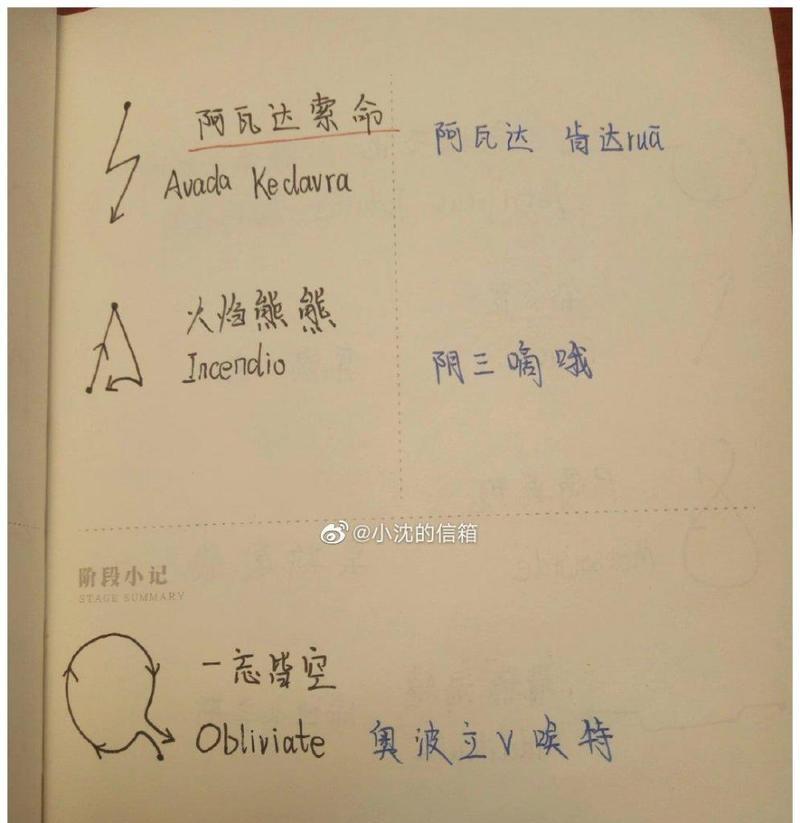 阿瓦达索命
阿瓦达 肯达ruā
Avada Kedavra
火焰熊熊
Incendio
阴三嘀哦
@小沈的信箱
阶段小记
STAGE SUMMARY
一忘皆空
Obliviate 奥波立V唉特